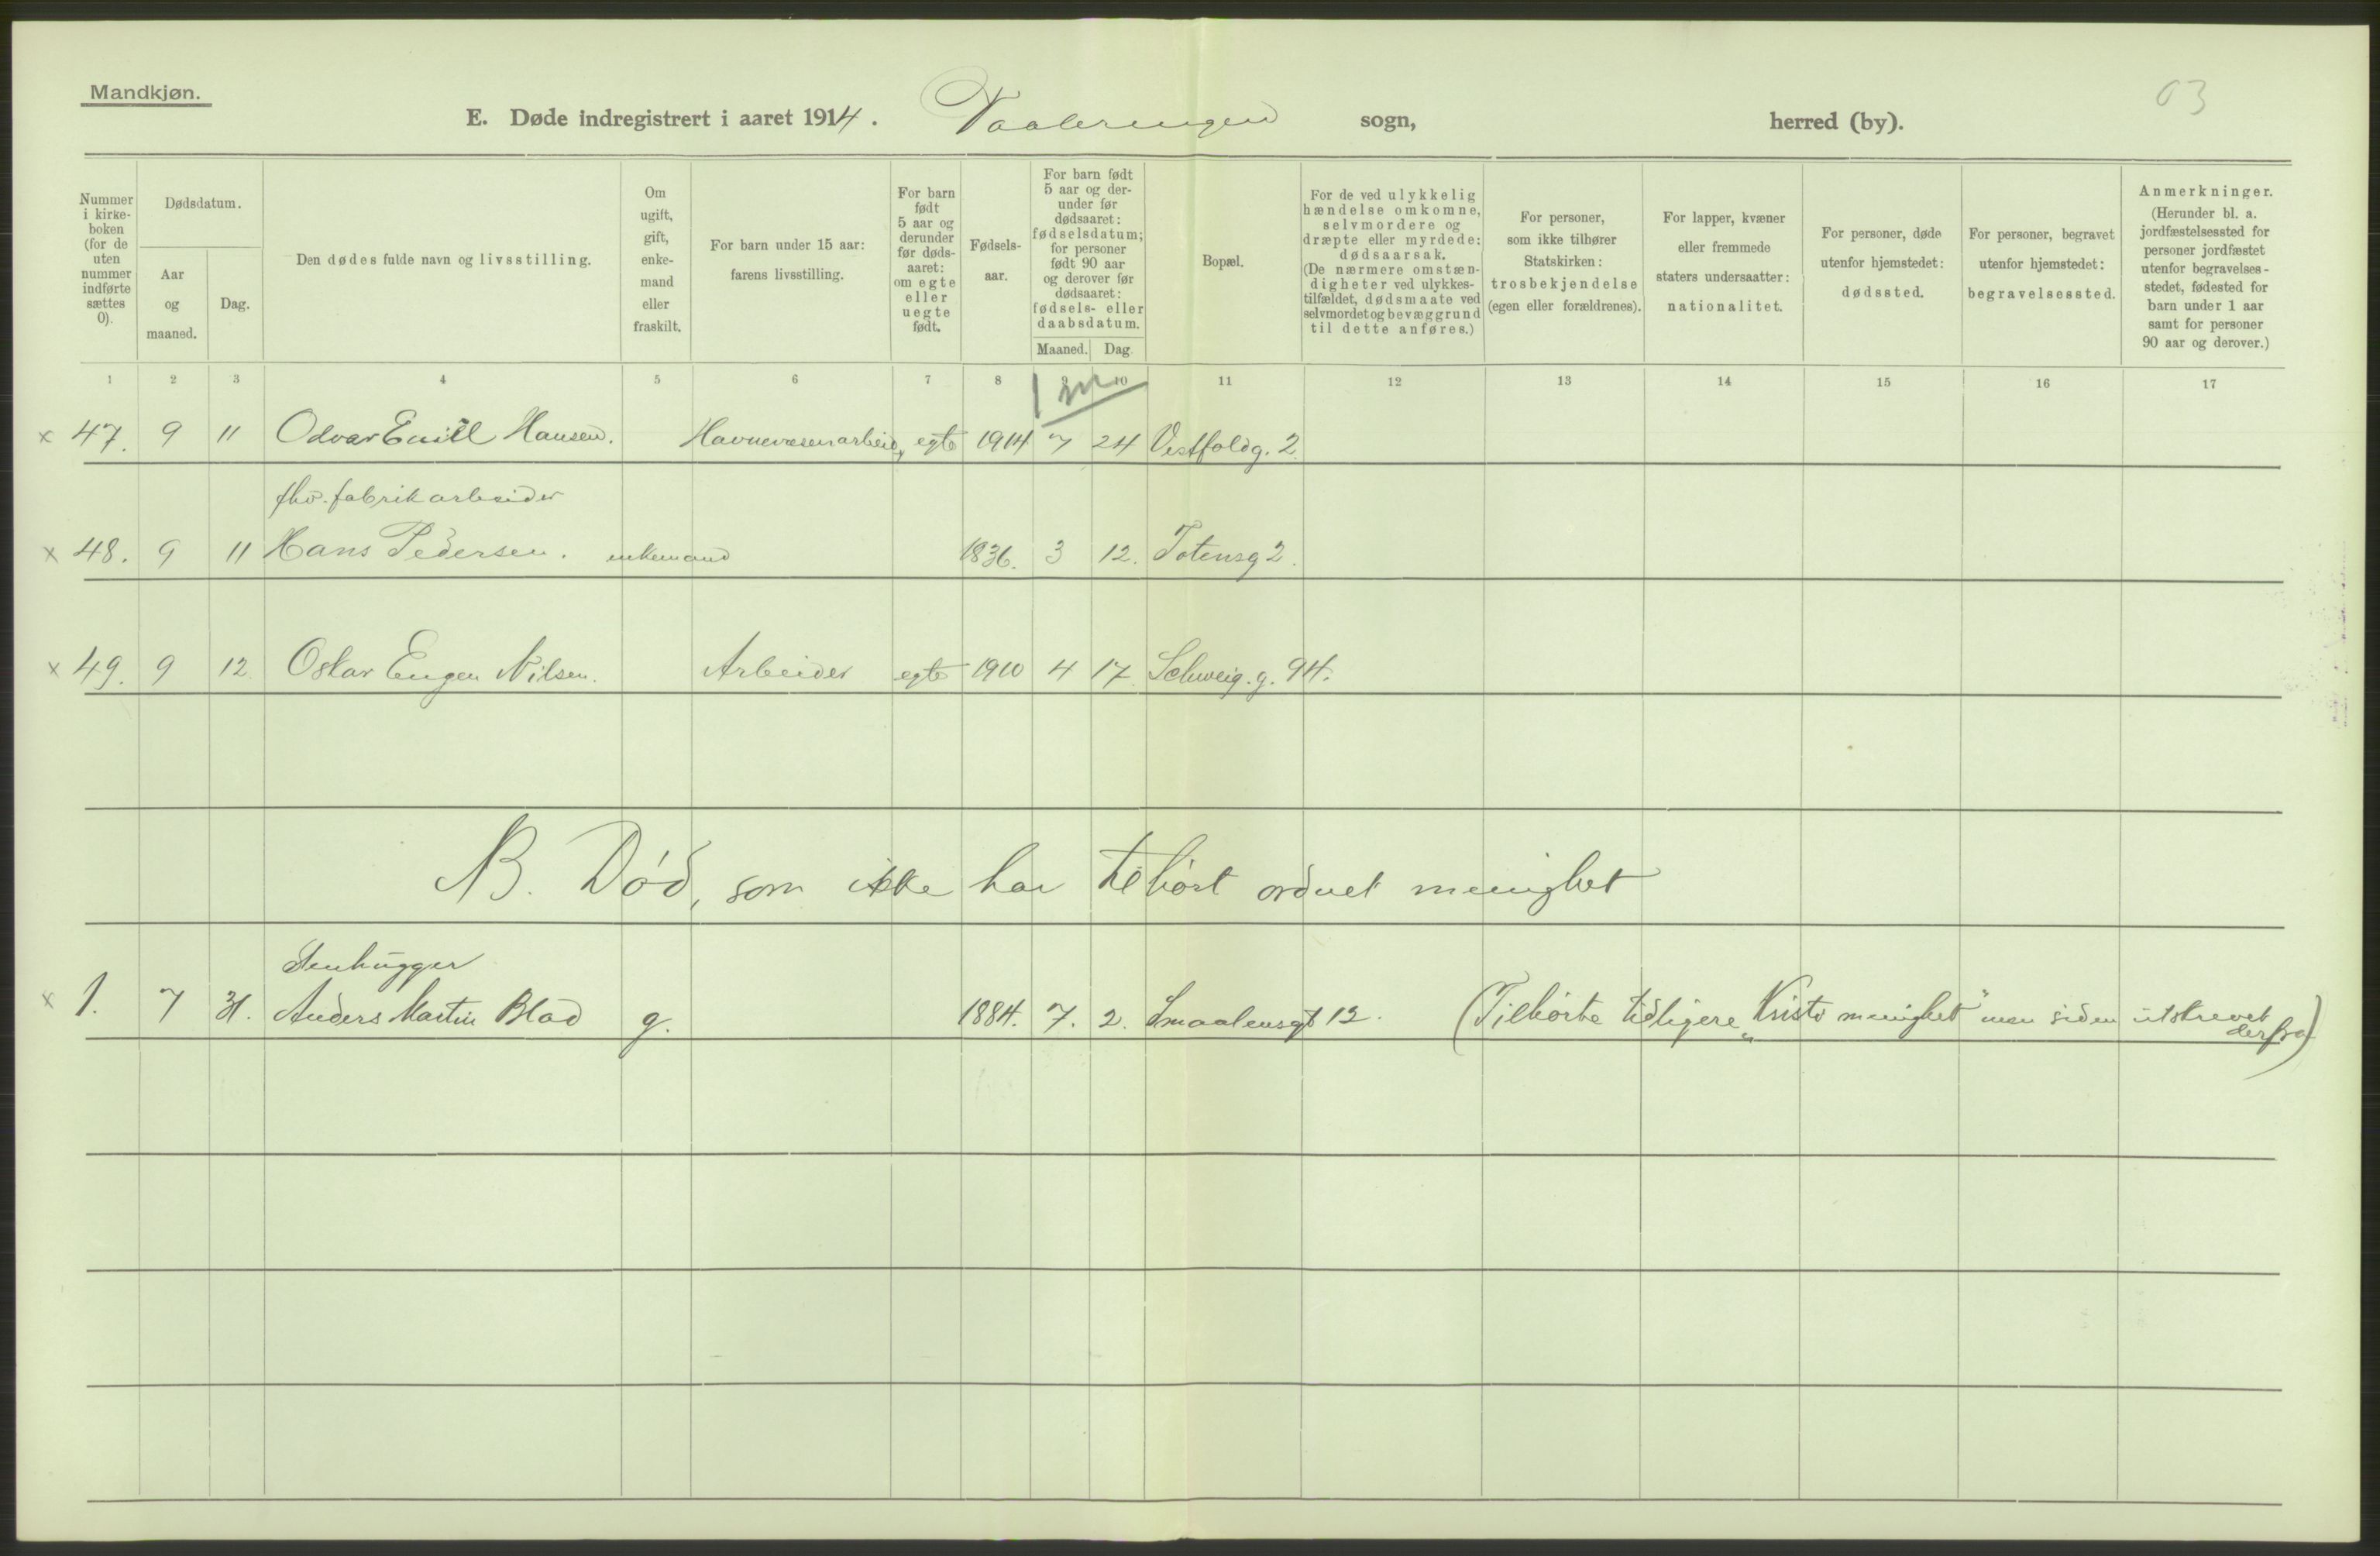 Mandkjøn.
03
E. Døde indregistrert i aaret 1914. Vaalerengen sogn, herred (by).
Nummer i kirke- boken (for de uten nummer indførte sættes 0).
Dødsdatum.
Aar og maaned.
Dag.
Den dødes fulde navn og livsstilling.
Om ugift, gift, enke- mand eller fraskilt.
For barn under 15 aar: farens livsstilling.
For barn født 5 aar og derunder før døds- aaret: om egte eller uegte født.
Fødsels- aar.
For barn født 5 aar og der- under før dødsaaret: fødselsdatum; for personer født 90 aar og derover før dødsaaret: fødsels- eller daabsdatum.
Maaned. Dag.
Bopæl.
For de ved ulykkelig hændelse omkomne, selvmordere og dræpte eller myrdede: dødsaarsak. (De nærmere omstæn- digheter ved ulykkes- tilfældet, dødsmaate ved selvmordet og bevæggrund til dette anføres.)
For personer, som ikke tilhører Statskirken: trosbekjendelse (egen eller forældrenes).
For lapper, kvæner eller fremmede staters undersaatter: nationalitet.
For personer, døde utenfor hjemstedet: dødssted.
For personer, begravet utenfor hjemstedet: begravelsessted.
Anmerkninger. (Herunder bl. a. jordfæstelsessted for personer jordfæstet utenfor begravelses- stedet, fødested for barn under 1 aar samt for personer 90 aar og derover.)
1 2 3 4 5 6 7 8 9 10 11 12 13 14 15 16 17
1 m
x 47. 9 11 Odvar Emil Hansen. Havnevæsenarbeid, egte 1914 7 24 Vestfoldg. 2.
fhv. fabrikarbeider
x 48. 9 11 Hans Pedersen. enkemand 1836. 3 12. Totensg 2.
x 49. 9 12 Oskar Eugen Nilsen. Arbeider egte 1910 4 17. Schweig. g. 94.
B. Død, som ikke har tilhørt ordnet menighet
Stenhugger
x 1. 7 31. Anders Martin Blad g. 1884. 7. 2. Smaalensgt 12. (Tilhørte tidligere „Kristi menighet" men siden utskrevet
derfra)